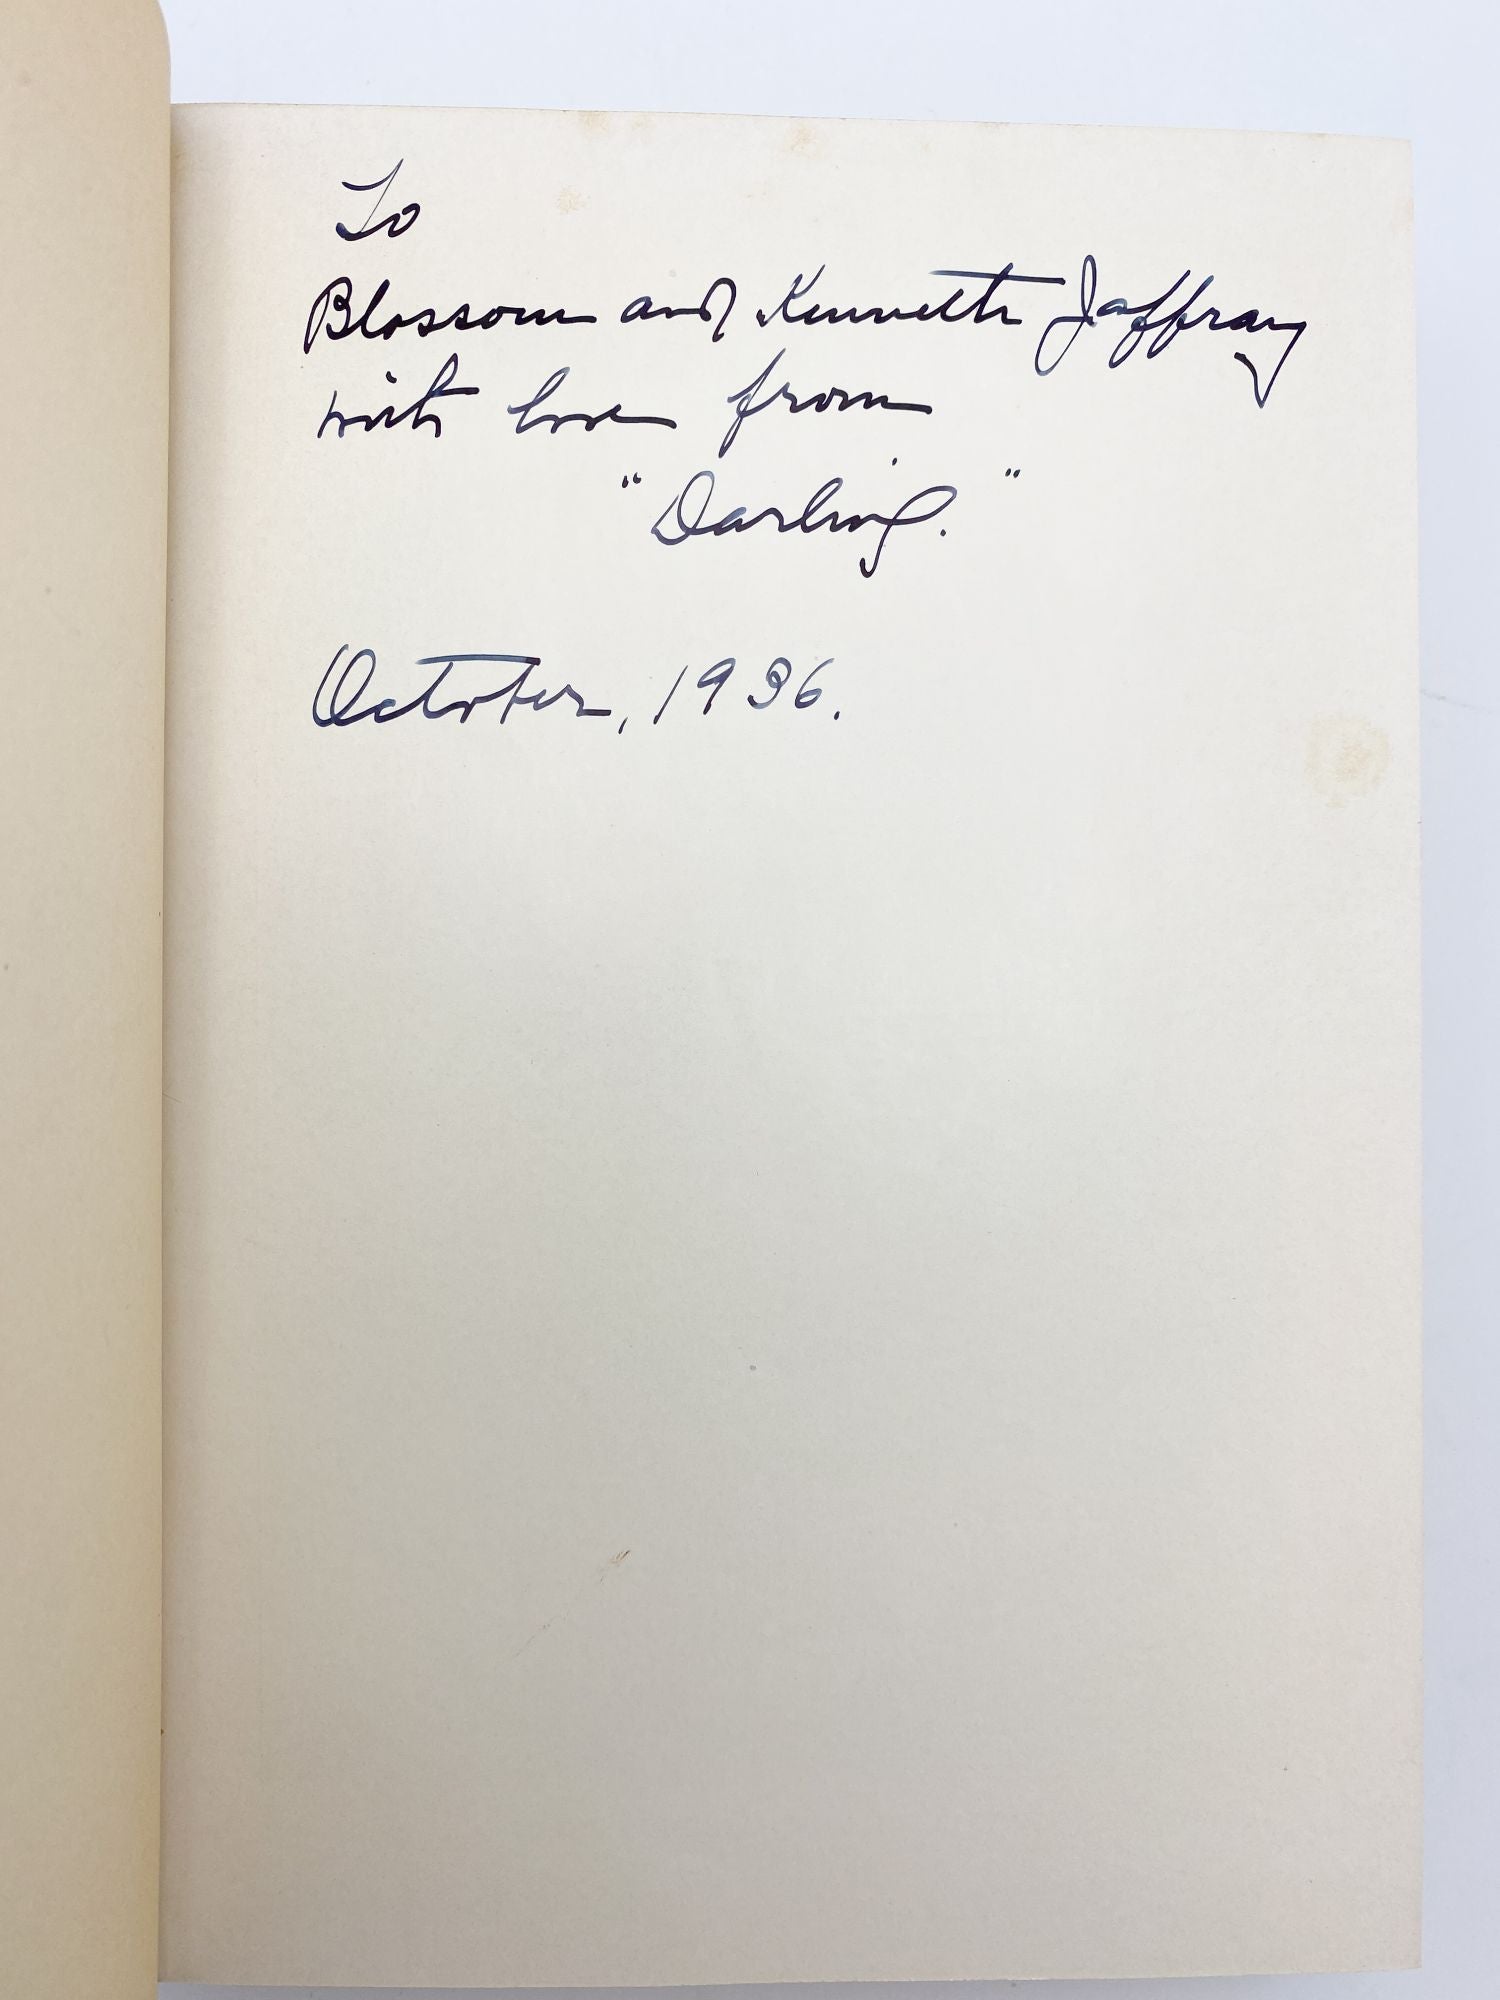 To
Blossom and Kenneth Jaffray
with love from
"Darling."
October, 1936.